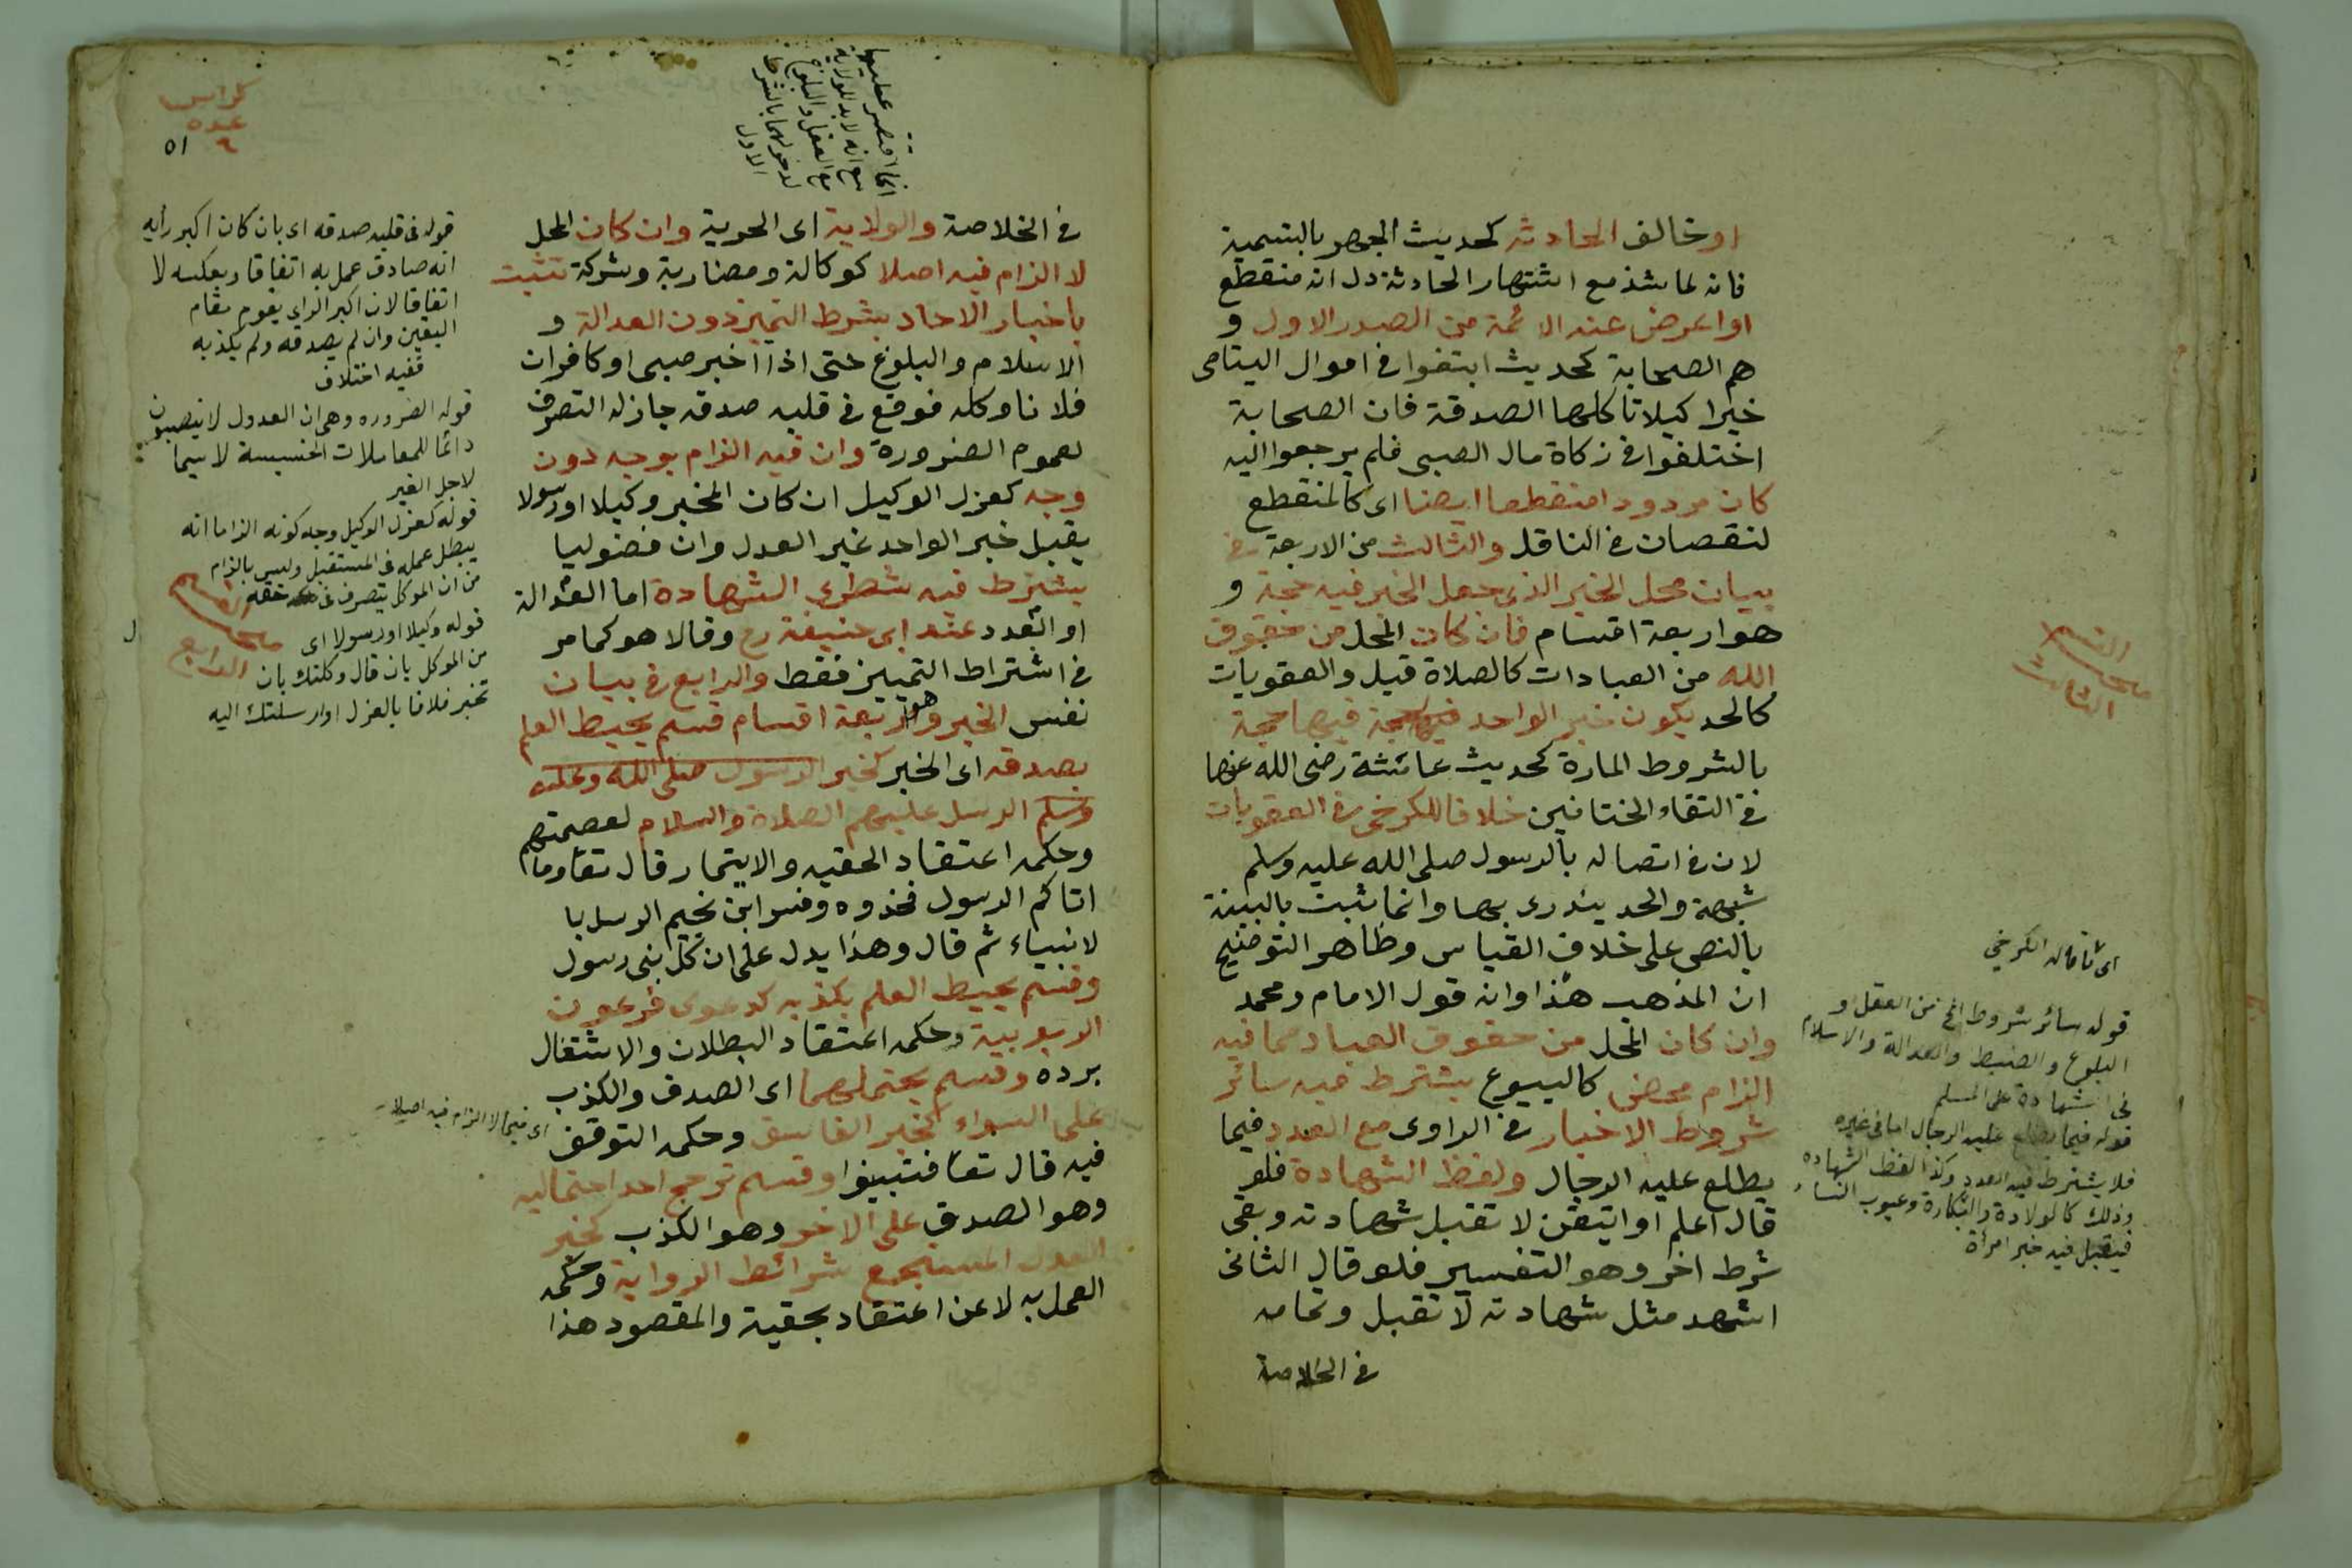 او خالف الحادثه كحديث الجهر بالتسمية
فانه لما شذ مع اشتهار الحادثة دل انه منقطع
او اعرض عنه الائمة من الصدر الاول و
هم الصحابة كحديث ابتغوا في اموال اليتامى
خيرا كيلا تاكلها الصدقة فان الصحابة
اختلفوا في زكاة مال الصبي فلم يرجعوا اليه
كان مردودا منقطعا ايضا اى كالمنقطع
لنقصان في الناقل والثالث من الاربعة في
بيان محل الخبر الذي جعل الخبر فيه حجة و
هو اربعة اقسام فان كان المحل من حقوق
الله من العبادات كالصلاة قيل والعقوبات
كالحد يكون خبر الواحد فيها حجة
بالشروط المارة كحديث عائشة رضى الله عنها
في التقاء الختانين خلافا للكرخي في العقوبات
لان في اتصاله بالرسول صلى الله عليه وسلم
شبهة والحد يندرى بها وانما ثبت بالبينة
بالنص على خلاف القياس وظاهر التوضيح
ان المذهب هذا وانه قول الامام ومحمد
وان كان المحل من حقوق العباد مما فيه
الزام محض كالبيوع يشترط فيه سائر
شروط الاخبار في الراوى مع العدد فيما
يطلع عليه الرجال ولفظ الشهادة فلو
قال اعلم او اتيقن لا تقبل شهادته وبقى
شرط اخر وهو التفسير فلو قال الثانى
اشهد مثل شهادته لا تقبل وتمامه
في الخلاصة
القسم
الثالث
اى قاله الكرخي
قوله سائر شروط الخ من العقل و
البلوغ والضبط والعدالة والاسلام
في الشهادة على المسلم
قوله فيما يطلع عليه الرجال اما في غيره
فلا يشترط فيه العدد وكذا لفظ الشهاده
وذلك كالولادة والبكارة وعيوب النساء
فيقبل فيه خبر امرأة
كراس
عده
٦ ٥١
انما اقتصر عليها
مع انه لا بد للولاية
من العقل والبلوغ
لدخولهما بالشرط
الاول
في الخلاصة والولاية اى الحرية وان كان المحل
لا الزام فيه اصلا كوكالة ومضاربة وشركة تثبت
باخبار الاحاد بشرط التميز دون العدالة و
الاسلام والبلوغ حتى اذا اخبر صبي او كافر ان
فلانا وكله فوقع في قلبه صدقه جاز له التصرف
لعموم الضرورة وان فيه الزام بوجه دون
وجه كعزل الوكيل ان كان المخبر وكيلا او رسولا
يقبل خبر الواحد غير العدل وان فضوليا
يشترط فيه شطرى الشهادة اما العدالة
او العدد عند ابى حنيفة رح وقالا هو كما مر
في اشتراط التمييز فقط والرابع في بيان
نفس الخبر وهو اربعة اقسام قسم يحيط العلم
بصدقه اى الخبر كخبر الرسول صلى الله وعليه
وسلم الرسل عليهم الصلاة والسلام لعصمتهم
وحكمه اعتقاد الحقيه والايتمار قال تعا وما
اتاكم الرسول فخذوه وفسر ابن نجيم الرسل با
لانبياء ثم قال وهذا يدل على ان كل نبى رسول
وقسم يحيط العلم بكذبه كدعوى فرعون
الربوبية وحكمه اعتقاد البطلان والاشتغال
برده وقسم يحتملهما اى الصدق والكذب
على السواء كخبر الفاسق وحكمه التوقف
فيه قال تعا فتبينوا وقسم ترجح احد احتماليه
وهو الصدق على الاخر وهو الكذب كخبر
العدل المستجمع شرائط الرواية وحكمه
العمل به لا عن اعتقاد بحقية والمقصود هذا
قوله في قلبه صدقه اى بان كان اكبر رأيه
انه صادق عمل به اتفاقا وبعكسه لا
اتفاقا لان اكبر الراى يقوم مقام
اليقين وان لم يصدقه ولم يكذبه
ففيه اختلاف
قوله الضروره وهى ان العدول لا ينتصبون
دائما للمعاملات الخسيسة لا سيما
لاجل الغير
قوله كعزل الوكيل وجه كونه الزاما انه
يبطل عمله في المستقبل وليس بالزام
من ان الموكل يتصرف في حقه
قوله وكيلا او رسولا اى
من الموكل بان قال وكلتك بان
تخبر فلانا بالعزل او ارسلتك اليه
القسم
الرابع
اى فيما لا الزام فيه اصلا